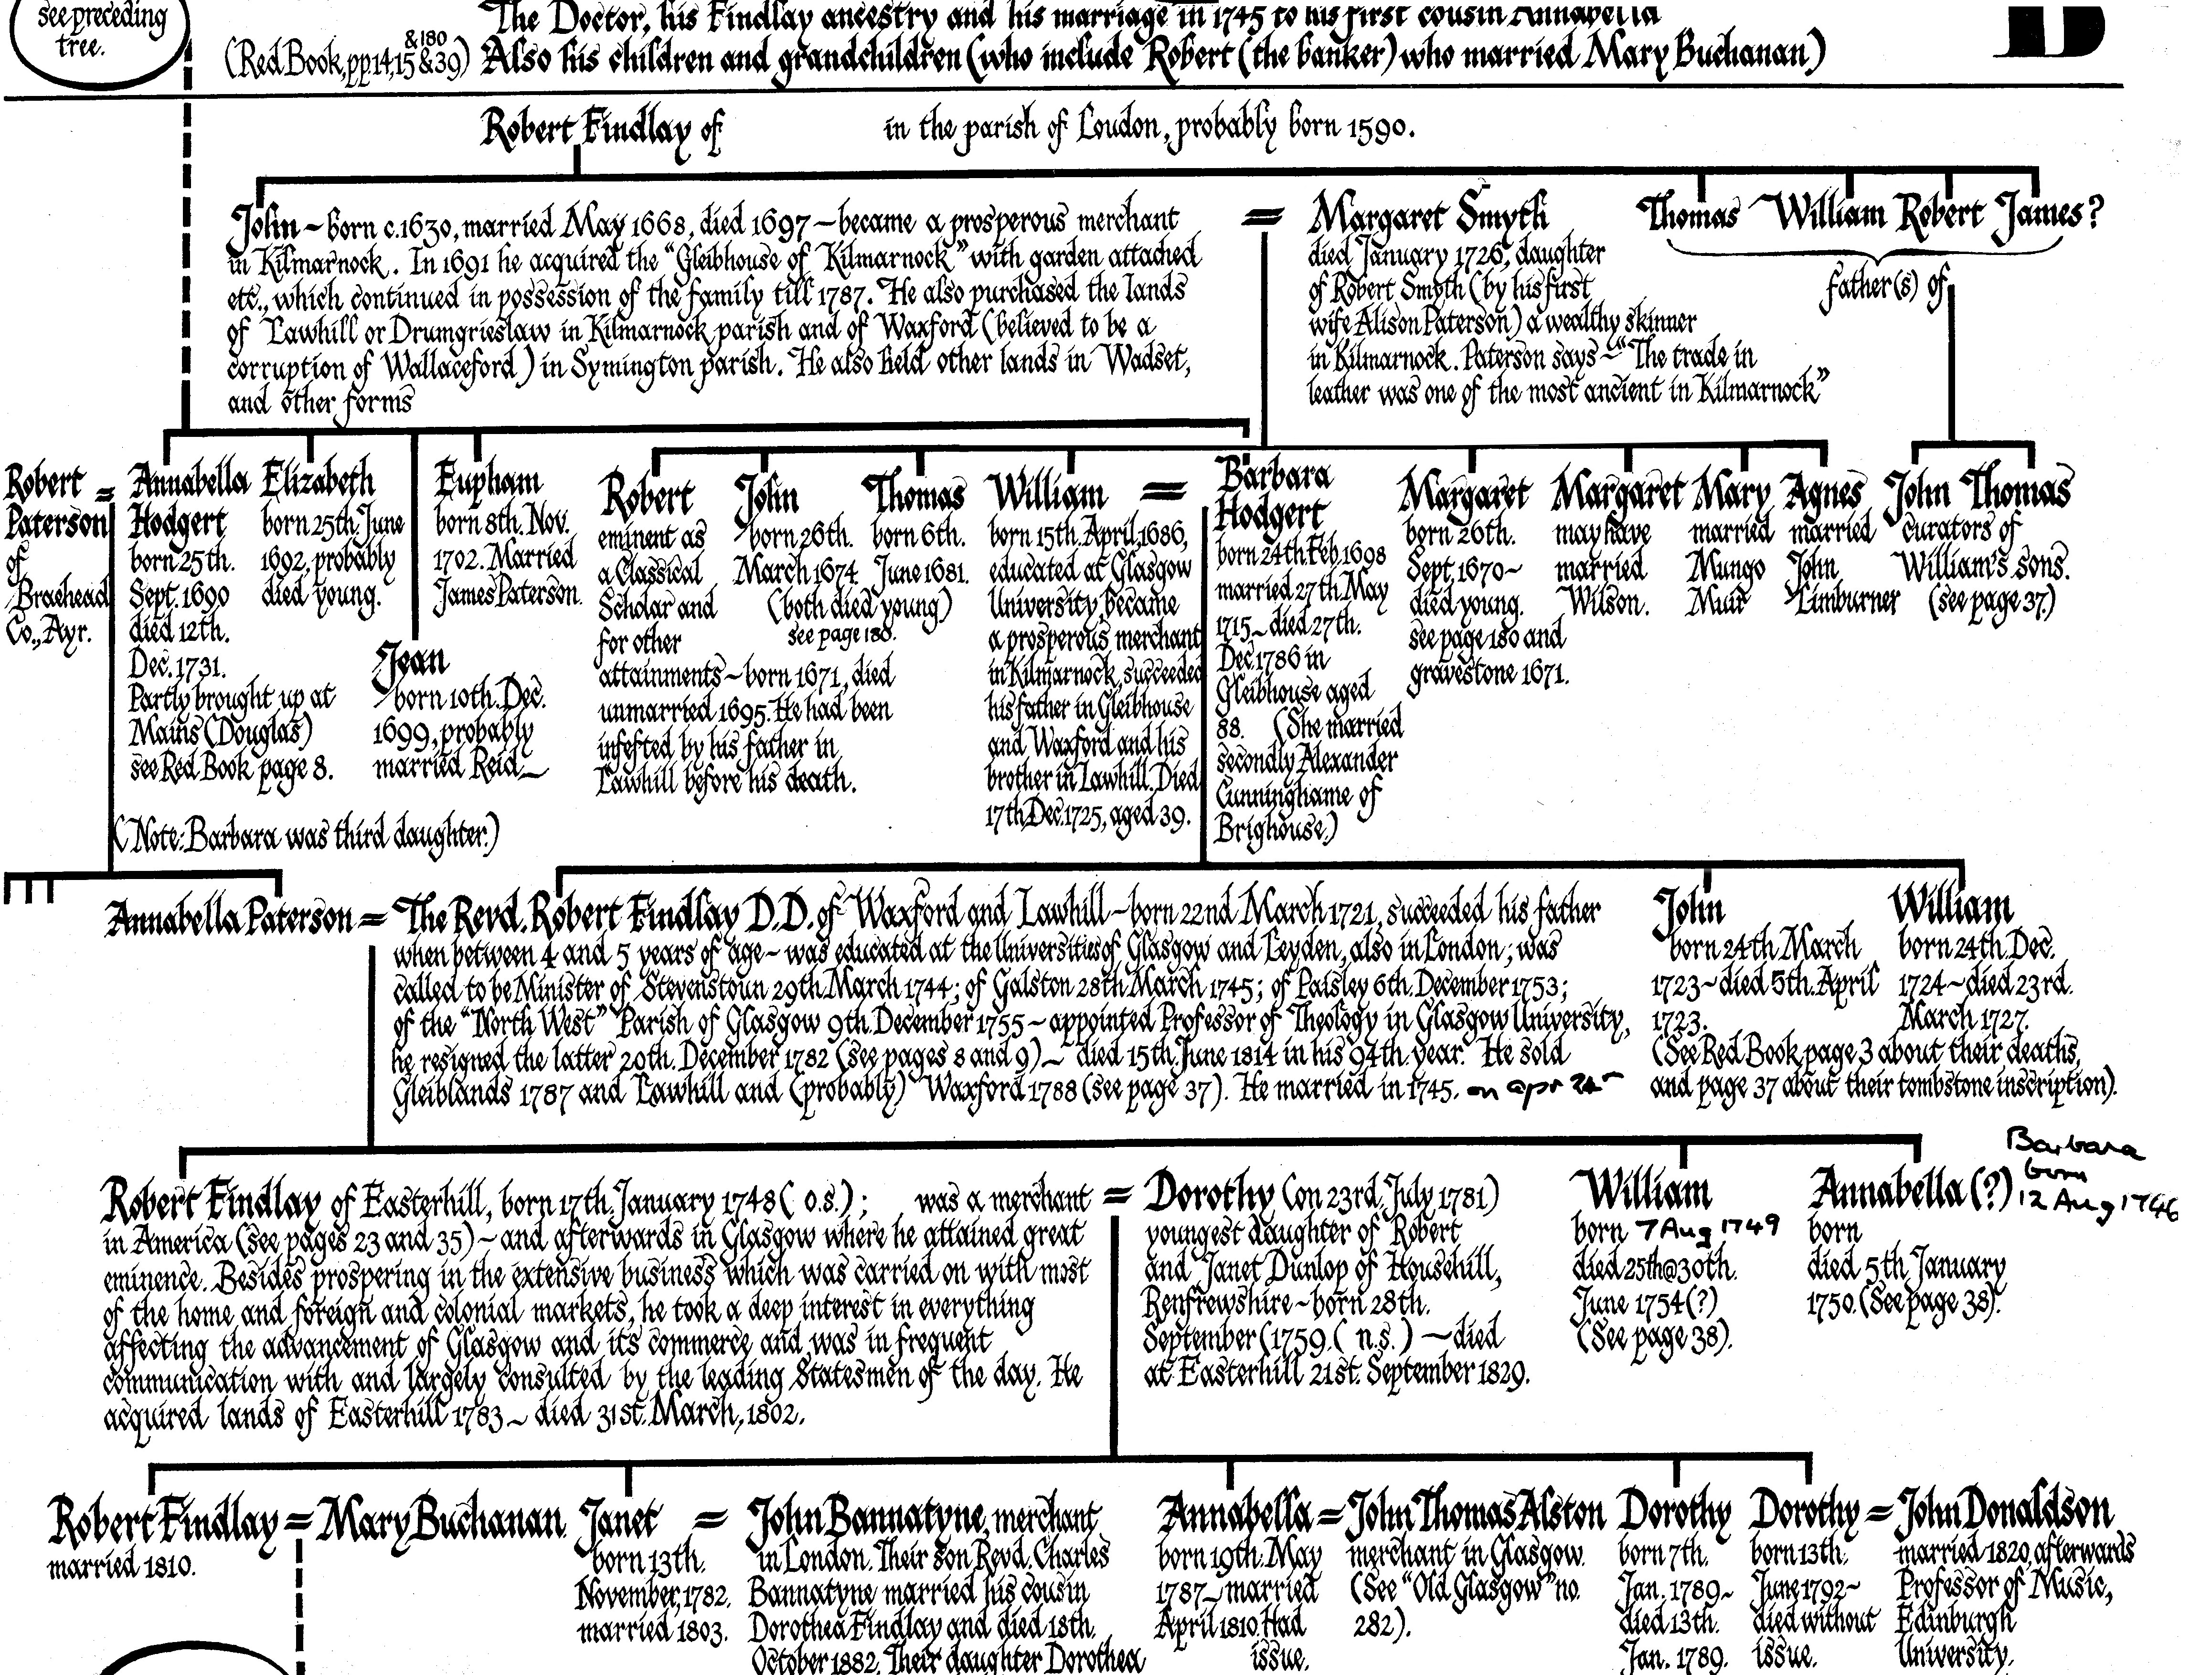 see preceding
tree.
The Doctor, his Findlay ancestry and his marriage in 1745 to his first cousin Annabella
(Red Book, pp. 14, 15 & 180 & 39) Also his children and grandchildren (who include Robert (the banker) who married Mary Buchanan)
B
Robert Findlay of in the parish of Loudon, probably born 1590.
John ~ born c.1630, married May 1668, died 1697 ~ became a prosperous merchant
in Kilmarnock. In 1691 he acquired the "Gleibhouse of Kilmarnock" with garden attached
etc., which continued in possession of the family till 1787. He also purchased the lands
of Lawhill or Drumgrieslaw in Kilmarnock parish and of Waxford (believed to be a
corruption of Wallaceford) in Symington parish. He also held other lands in Wadset,
and other forms
= Margaret Smyth
died January 1726, daughter
of Robert Smyth (by his first
wife Alison Paterson) a wealthy skinner
in Kilmarnock. Paterson says ~ "The trade in
leather was one of the most ancient in Kilmarnock"
Thomas William Robert James?
father(s) of
Robert =
Paterson
of
Braehead
Co., Ayr.
Annabella
Hodgert
born 25th.
Sept. 1690
died 12th.
Dec. 1731.
Partly brought up at
Mains (Douglas)
see Red Book page 8.
Elizabeth
born 25th. June
1692, probably
died young.
Jean
born 10th. Dec.
1699, probably
married Reid_
Eupham
born 8th. Nov.
1702. Married
James Paterson.
(Note: Barbara was third daughter.)
Robert
eminent as
a Classical
Scholar and
for other
attainments ~ born 1671, died
unmarried 1695. He had been
infefted by his father in
Lawhill before his death.
John
born 26th.
March 1674
Thomas
born 6th.
June 1681.
(both died young)
see page 180.
William =
born 15th. April, 1686,
educated at Glasgow
University, became
a prosperous merchant
in Kilmarnock, succeeded
his father in Gleibhouse
and Waxford and his
brother in Lawhill. Died
17th. Dec. 1725, aged 39.
Barbara
Hodgert
born 24th. Feb. 1698
married 27th. May
1715 ~ died 27th.
Dec. 1786 in
Gleibhouse aged
88. (She married
secondly Alexander
Cunninghame of
Brighouse.)
Margaret
born 26th.
Sept. 1670 ~
died young.
see page 180 and
gravestone 1671.
Margaret
may have
married
Wilson.
Mary
married
Mungo
Muir
Agnes
married
John
Limburner
John Thomas
curators of
William's sons.
(see page 37.)
Annabella Paterson = The Revd. Robert Findlay D.D. of Waxford and Lawhill ~ born 22nd March 1721, succeeded his father
when between 4 and 5 years of age ~ was educated at the Universities of Glasgow and Leyden, also in London; was
called to be Minister of Stevenstoun 29th March 1744; of Galston 28th March 1745; of Paisley 6th. December 1753;
of the "North West" Parish of Glasgow 9th. December 1755 ~ appointed Professor of Theology in Glasgow University,
he resigned the latter 20th. December 1782 (see pages 8 and 9) ~ died 15th. June 1814 in his 94th. year. He sold
Gleiblands 1787 and Lawhill and (probably) Waxford 1788 (see page 37). He married in 1745. on apr 24
John
born 24th March
1723 ~ died 5th. April
1723.
William
born 24th. Dec.
1724 ~ died 23rd.
March 1727.
(See Red Book page 3 about their deaths,
and page 37 about their tombstone inscription).
Robert Findlay of Easterhill, born 17th. January 1748 ( o.s.) ; was a merchant =
in America (see pages 23 and 35) ~ and afterwards in Glasgow where he attained great
eminence. Besides prospering in the extensive business which was carried on with most
of the home and foreign and colonial markets, he took a deep interest in everything
affecting the advancement of Glasgow and its commerce and was in frequent
communication with and largely consulted by the leading Statesmen of the day. He
acquired lands of Easterhill 1783 ~ died 31st. March, 1802.
Dorothy (on 23rd. July 1781)
youngest daughter of Robert
and Janet Dunlop of Househill,
Renfrewshire ~ born 28th.
September (1759. ( n.s.) ~ died
at Easterhill 21st. September 1829.
William
born 7 Aug 1749
died 25th @ 30th.
June 1754 (?)
(See page 38).
Annabella (?)
born
died 5th. January
1750. (See page 38).
Barbara
born
12 Aug 1746
Robert Findlay = Mary Buchanan
married 1810.
Janet =
born 13th.
November, 1782.
married 1803.
John Bannatyne, merchant
in London. Their son Revd. Charles
Bannatyne married his cousin
Dorothea Findlay and died 18th.
October 1882. Their daughter Dorothea
Annabella =
born 19th. May
1787 ~ married
April 1810. Had
issue.
John Thomas Alston
merchant in Glasgow.
(See "Old Glasgow" no.
282).
Dorothy
born 7th.
Jan. 1789 ~
died 13th.
Jan. 1789.
Dorothy =
born 13th.
June 1792 ~
died without
issue.
John Donaldson
married 1820, afterwards
Professor of Music,
Edinburgh
University.